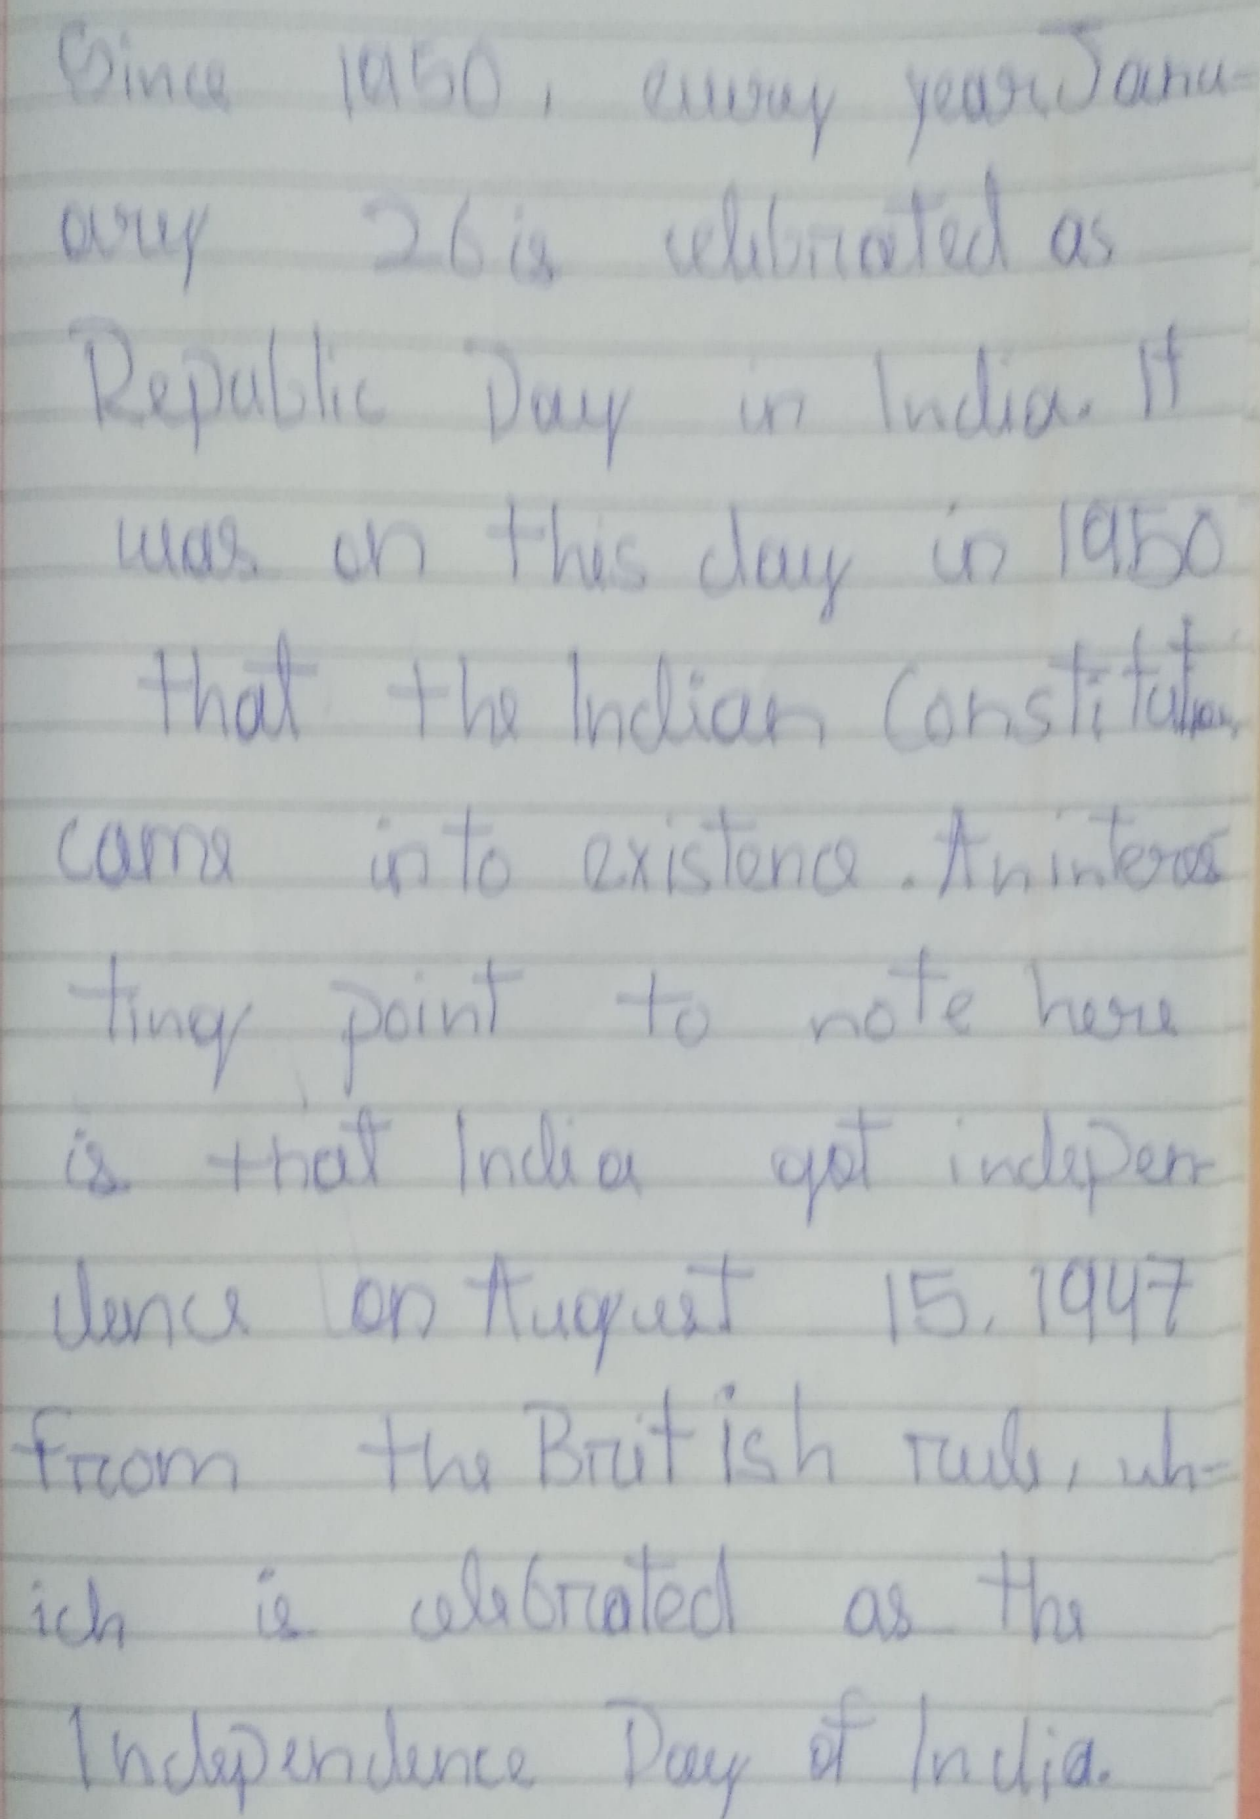 Since 1950, every year Janu-
ary 26 is celebrated as
Republic Day in India. It
was on this day in 1950
that the Indian Constitution
came into existence. An interes
ting point to note here
is that India got indepen-
dence on August 15, 1947
from the British rule, wh-
ich is celebrated as the
Independence Day of India.